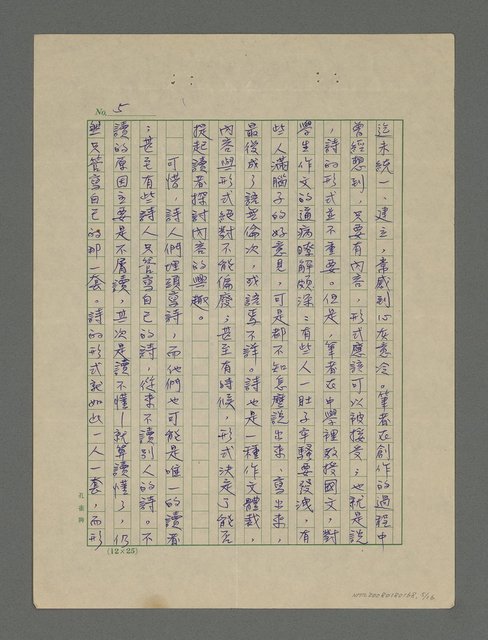 No. 5
迄未統一、建立，常感到心灰意冷。筆者在創作的過程中
曾經想到，只要有內容，形式應該可以被接受；也就是說
，詩的形式並不重要。但是，筆者在中學裡教授國文，對
學生作文的通病瞭解頗深：有些人一肚子牢騷要發洩，有
些人滿腦子的好意見，可是都不知怎麼說出來，寫出來，
最後成了語無倫次，或語焉不詳。詩也是一種作文體裁，
內容與形式絕對不能偏廢；甚至有時候，形式決定了能否
提起讀者探討內容的興趣。
可惜，詩人們埋頭寫詩，而他們也可能是唯一的讀者
；甚至有些詩人只管寫自己的詩，從來不讀別人的詩。不
讀的原因主要是不屑讀，其次是讀不懂！就算讀懂了，仍
然只管寫自己的那一套。詩的形式就如此一人一套，而形
孔雀牌
(12×25)
NMTL20080180168, 5/16